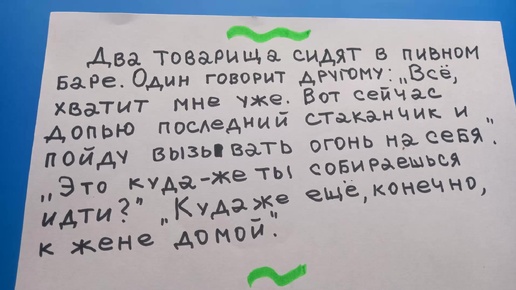 Два товарища сидят в пивном
баре. Один говорит другому: „Всё,
хватит мне уже. Вот сейчас
допью последний стаканчик и
пойду вызывать огонь на себя".
„Это куда-же ты собираешься
идти?" „Куда же ещё, конечно,
к жене домой."